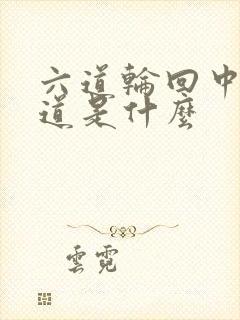 六道輪回中
道是什麼
雲霓